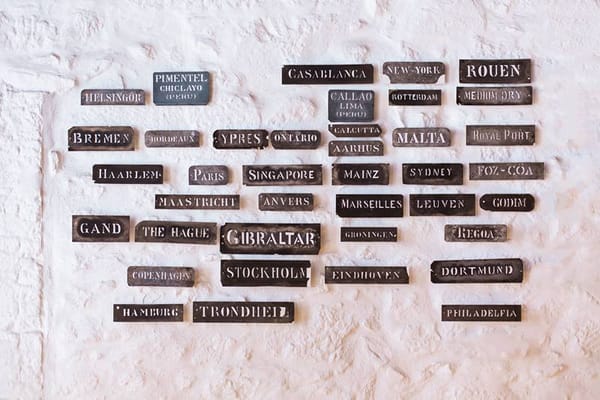 CASABLANCA
NEW-YORK
ROUEN
HELSINGÖR
PIMENTEL
CHICLAYO
(PERU)
CALLAO
LIMA
(PERU)
ROTTERDAM
MEDIUM DRY
BREMEN
BORDEAUX
YPRES
ONTARIO
CALCUTTA
AARHUS
MALTA
ROYAL PORT
HAARLEM
PARIS
SINGAPORE
MAINZ
SYDNEY
FOZ-CÔA
MAASTRICHT
ANVERS
MARSEILLES
LEUVEN
GODIM
GAND
THE HAGUE
GIBRALTAR
GRONINGEN
REGOA
COPENHAGEN
STOCKHOLM
EINDHOVEN
DORTMUND
HAMBURG
TRONDHEIL
PHILADELFIA